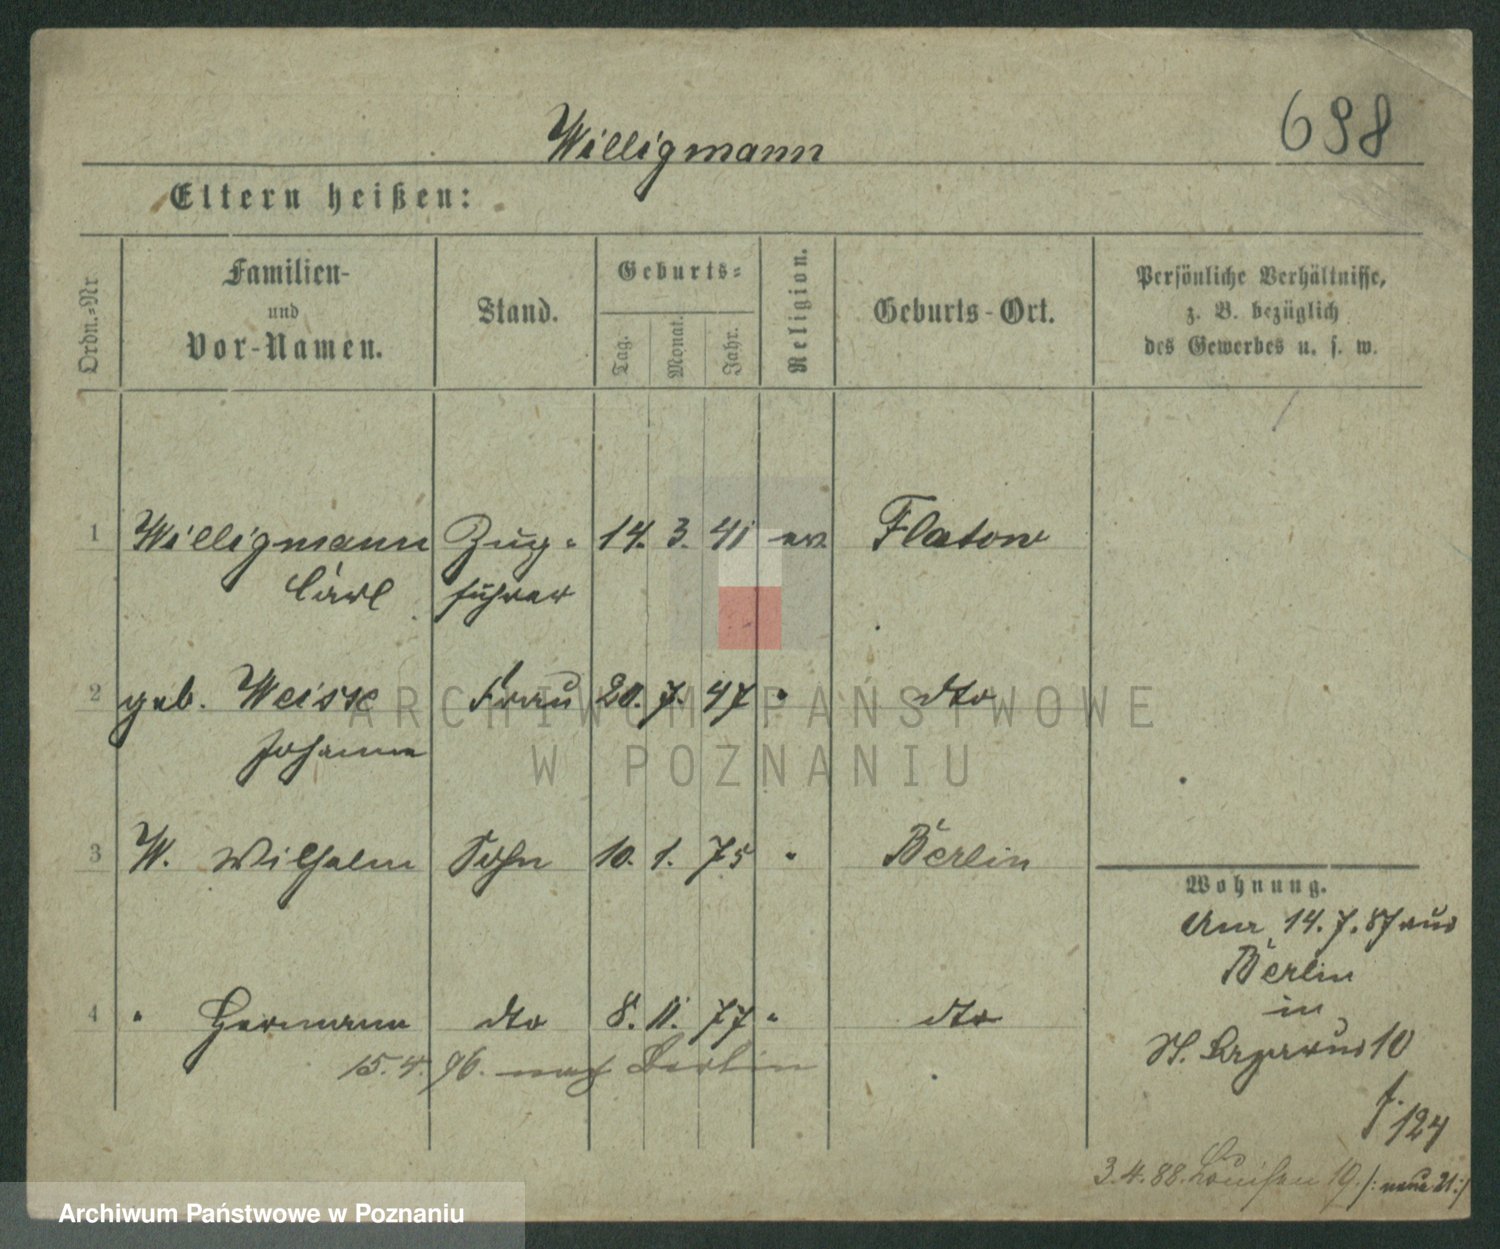 698
Willigmann
Eltern heißen:
Ordn.=Nr
Familien-
und
Vor-Namen.
Stand.
Geburts=
Tag.
Monat.
Jahr.
Religion.
Geburts-Ort.
Persönliche Verhältnisse,
z. B. bezüglich
des Gewerbes u. s. w.
1 Willigmann Zug- 14. 3. 41 ev Flatow
Carl führer
2 geb. Weisse Frau 20. 7. 47 " dto
Johanna
3 W. Wilhelm Sohn 10. 1. 75 " Berlin
Wohnung.
14. 7. 87 aus
Berlin
in
4 " Hermann dto 8. 11. 77 " dto
St. Lazarus 10
15. 4. 96. nach Berlin
f. 124
3. 4. 88. Louisen 19. /: neue 21 :/
ARCHIWUM PAŃSTWOWE
W POZNANIU
Archiwum Państwowe w Poznaniu